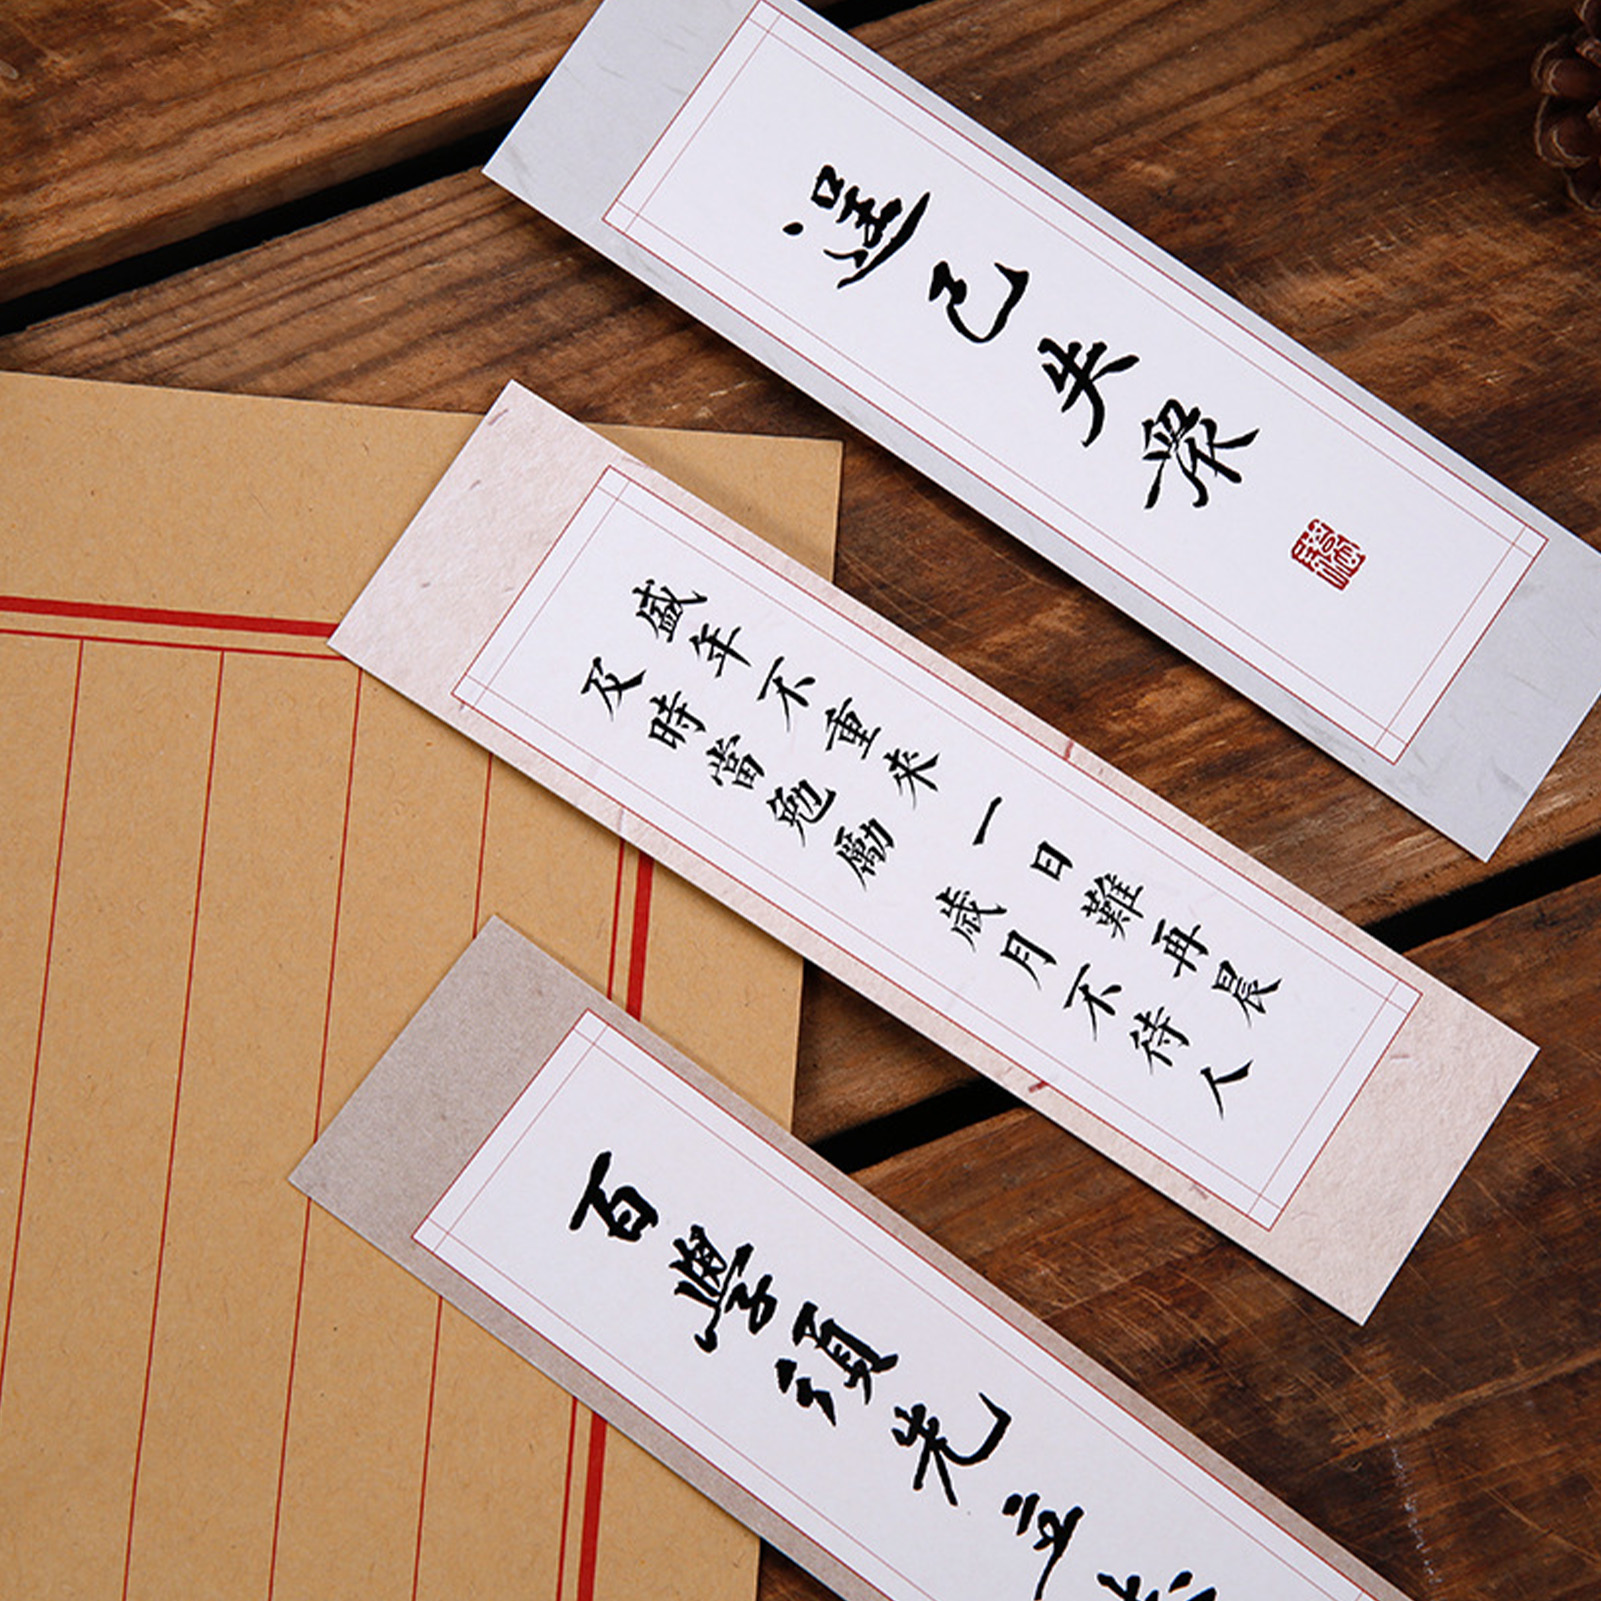 逞己失眾
盛年不重來 一日難再晨
及時當勉勵 歲月不待人
百學須先立